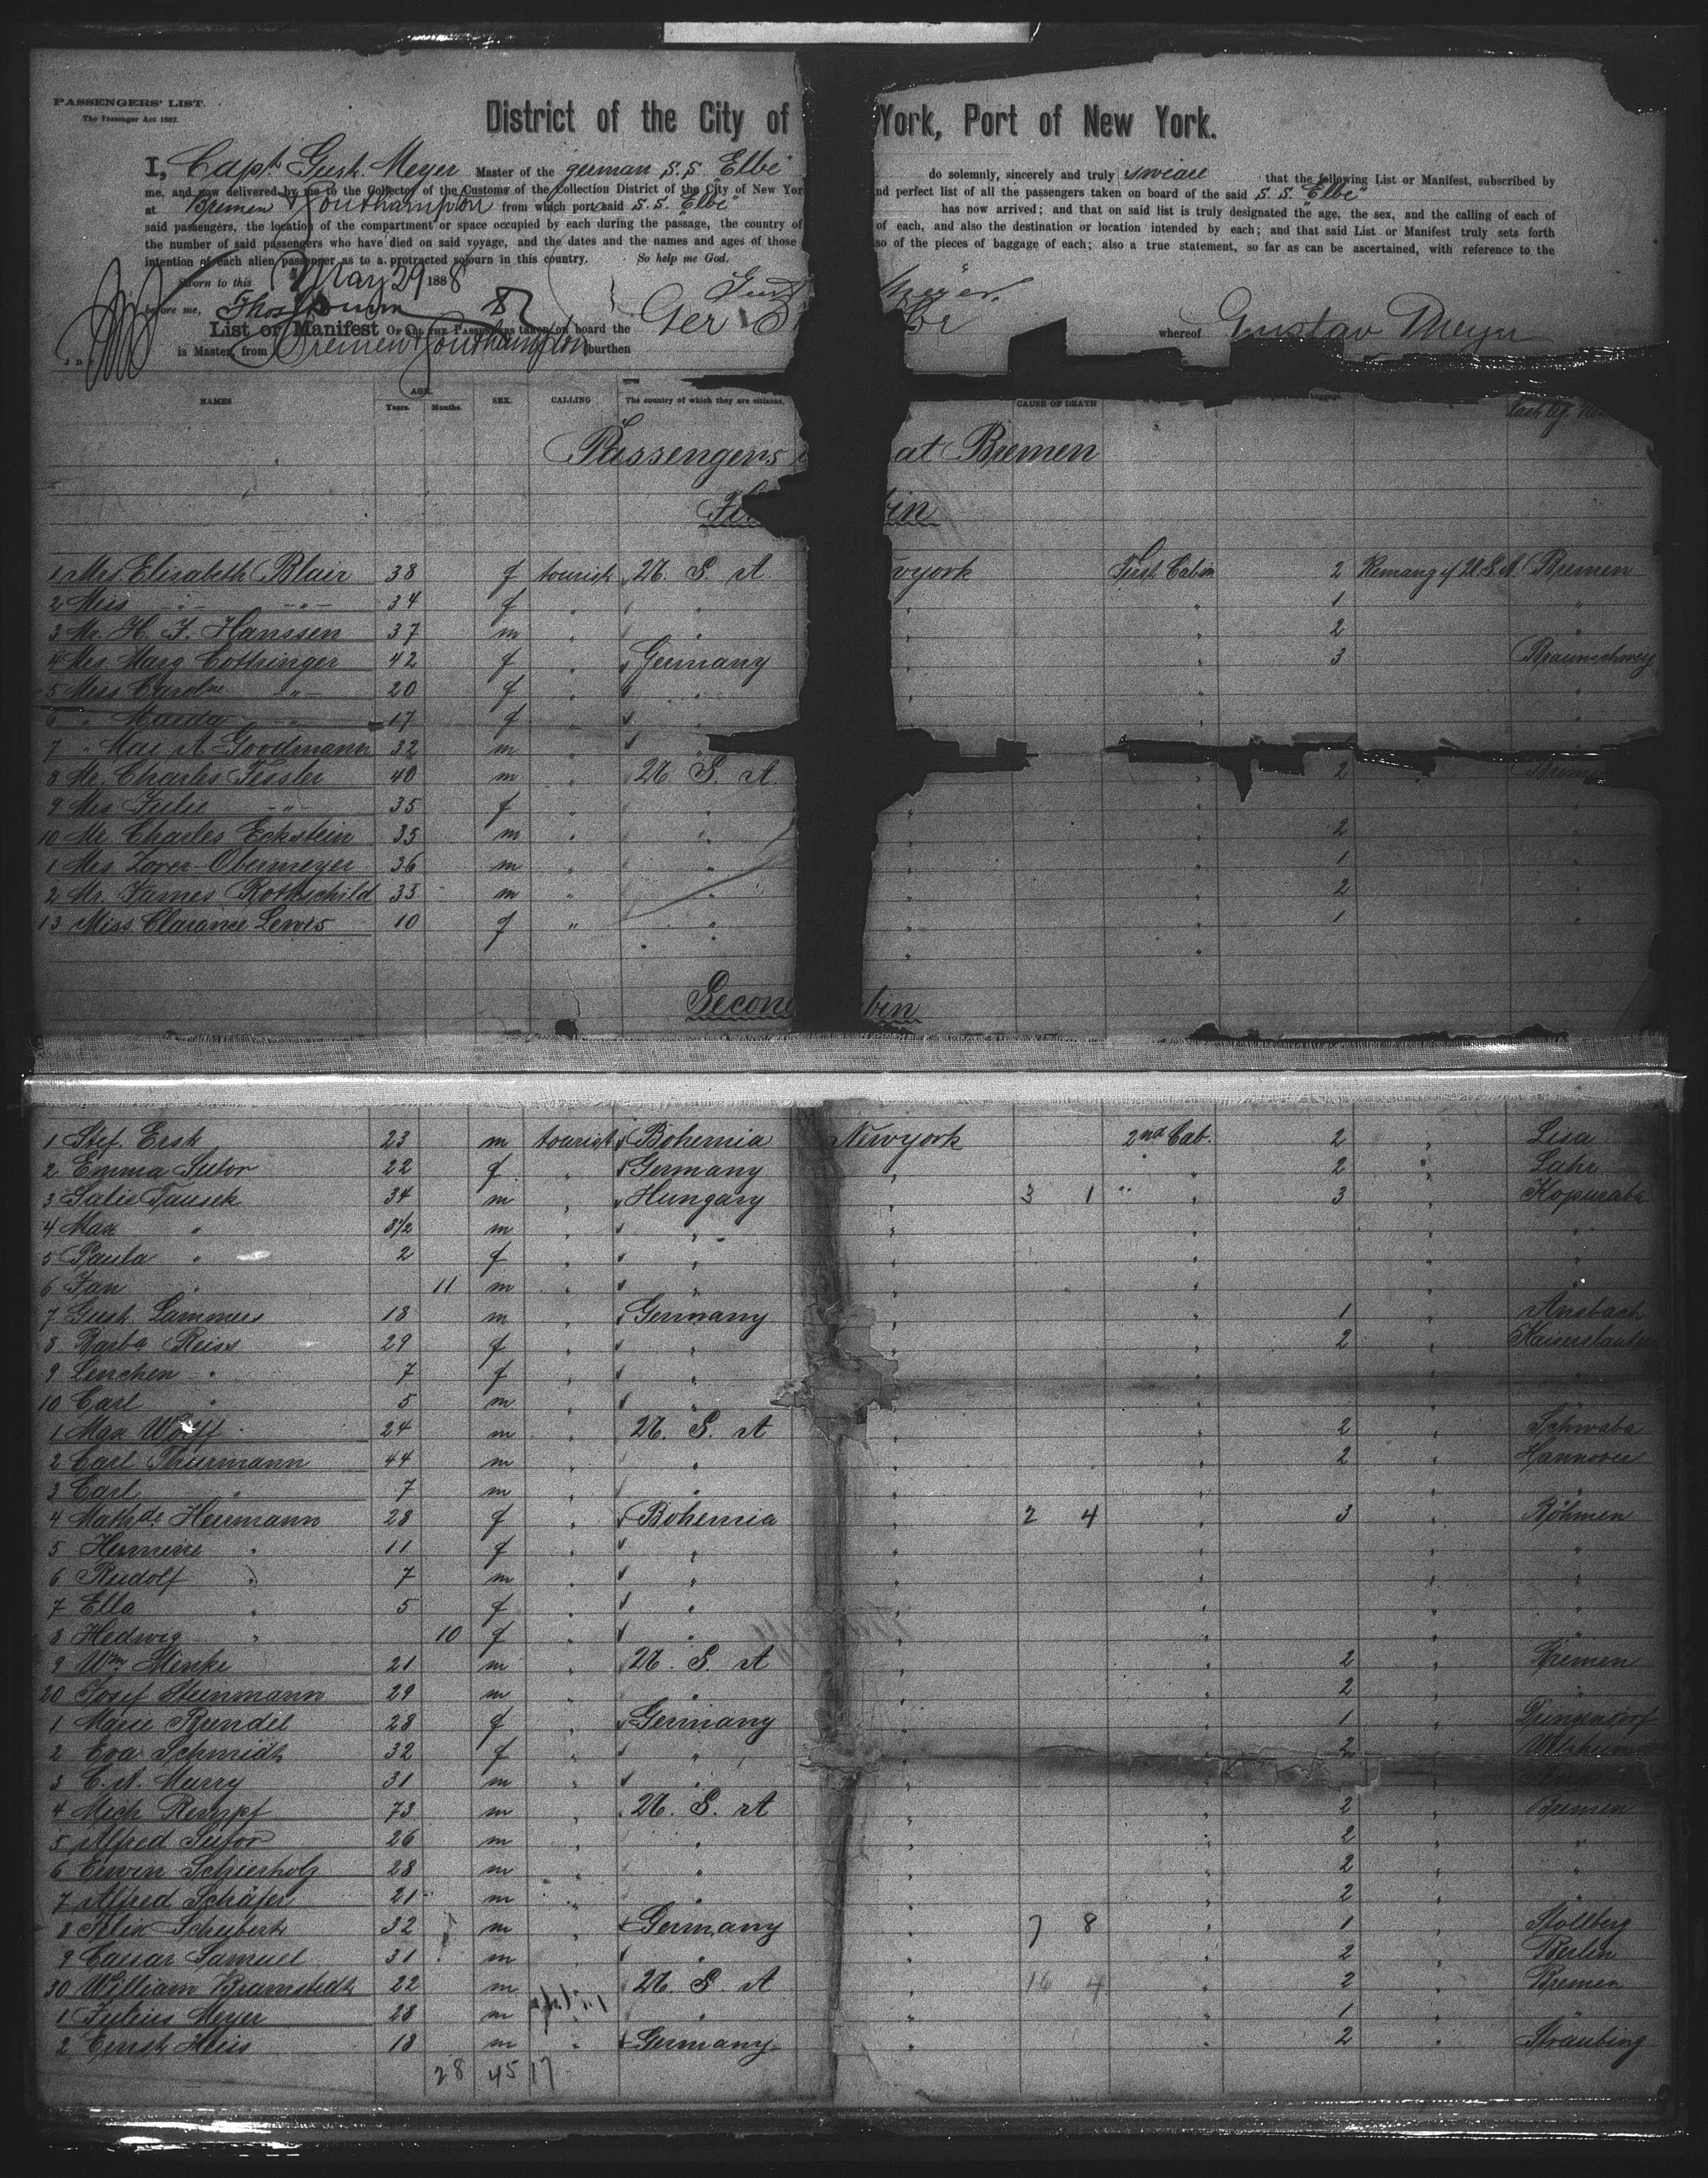 PASSENGERS' LIST.
The Passenger Act 1882.
District of the City of York, Port of New York.
I, Capt. Gust. Meyer Master of the german S.S. Elbe do solemnly, sincerely and truly sweare that the following List or Manifest, subscribed by
me, and now delivered by me to the Collector of the Customs of the Collection District of the City of New Yor nd perfect list of all the passengers taken on board of the said S.S. "Elbe"
at Bremen & Southampton from which port said S.S. "Elbe" has now arrived; and that on said list is truly designated the age, the sex, and the calling of each of
said passengers, the location of the compartment or space occupied by each during the passage, the country of of each, and also the destination or location intended by each; and that said List or Manifest truly sets forth
the number of said passengers who have died on said voyage, and the dates and the names and ages of those so of the pieces of baggage of each; also a true statement, so far as can be ascertained, with reference to the
intention of each alien passenger as to a protracted sojourn in this country. So help me God.
Sworn to this May 29 1888
before me, Gust Meyer.
List or Manifest OF ALL THE PASSENGERS taken on board the Ger whereof Gustav Meyer
is Master, from Bremen & Southampton burthen
NAMES AGE. Years. Months. SEX. CALLING The country of which they are citizens. CAUSE OF DEATH
Passengers at Bremen
in
1 Mrs. Elisabeth Blair 38 f tourist U. S. A wyork First Cabin 2 Bremen
2 Miss -"- -"- 34 f " " " " 1 "
3 Mr. H. F. Hanssen 37 m " " " " 2 "
4 Mrs. Marg Cottringer 42 f " Germany " " 3 Braunschweig
5 Miss Caroline -"- 20 f " " " " "
6 " -"- 17 f " " " "
7 " Max A Goodmann 32 m " "
8 Mr. Charles Tessler 40 m " U. S. A 2
9 Mrs Julie -"- 35 f " " "
10 Mr. Charles Eckstein 35 m " " " " 2 "
1 Mrs Obermeyer 36 m " " " " 1 "
2 Mr. James Rothschild 35 m " " " " 2 "
13 Miss Clarance Lewis 10 f " " " " 1 "
Secon bin
1 Stef. Ersk 23 m tourist Bohemia Newyork 2nd Cab. 2 " Lisa
2 Emma Sutor 22 f " Germany " " 2 " Lahr
3 Salie Tausek 34 m " Hungary " 3 1 " 3 "
4 Max " 3 1/2 m " " " " " "
5 Paula " 2 f " " " " " "
6 Jan " 11 m " " " " " "
7 Gust. Lammers 18 m " Germany " " 1 " Ansbach
8 Barba Reiss 29 f " " " " 2 " Kaiserslautern
9 Lenchen " 7 f " " " " " "
10 Carl " 5 m " " " " " "
1 Max Wolff 24 m " U. S. A " " 2 " Schwaba
2 Carl Thurmann 44 m " " " " 2 " Hannover
3 Carl " 7 m " " " " " "
4 Mathde Herrmann 28 f " Bohemia " 2 4 " 3 " Böhmen
5 Hermine " 11 f " " " " " "
6 Rudolf " 7 m " " " " " "
7 Ella " 5 f " " " " " "
8 Hedwig " 10 f " " " " " "
9 Wm Menke 21 m " U. S. A " " 2 " Bremen
20 Josef Steinmann 29 m " " " " 2 " "
1 Marie Brendel 28 f " Germany " " 1 "
2 Eva Schmidt 32 f " " " " 2 "
3 C. A. Murry 31 m " " "
4 Mich Rempf 73 m " U. S. A " " 2 " Bremen
5 Alfred Sutor 26 m " " " " 2 " "
6 Erwin Schierholz 28 m " " " " 2 " "
7 Alfred Schäfer 21 m " " " " 2 " "
8 Felix Schubert 32 m " Germany " 7 8 " 1 " Stollberg
9 Caesar Samuel 31 m " " " " 2 " Berlin
30 William Bramstedt 22 m " U. S. A " 16 4 " 2 " Bremen
1 Julius Meyer 28 m " " " 1 " "
2 Ernst Heiss 18 m " Germany " " 2 " Straubing
28 45 17